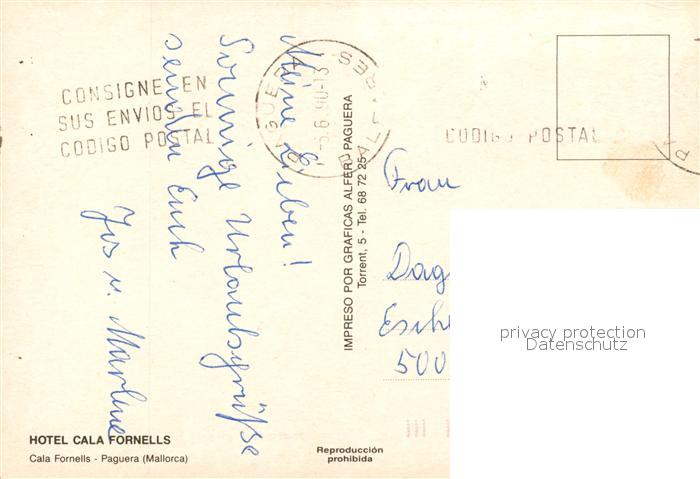 Meine Lieben!
Sonnige Urlaubsgrüße
senden Euch
Jos u. Marlene
CONSIGNE EN
SUS ENVIOS EL
CODIGO POSTAL
PAGUERA
BALEARES
-5.6.90-13
CODIGO POSTAL
IMPRESO POR GRAFICAS ALFER - PAGUERA
Torrent, 5 - Tel. 68 72 25
Frau
Dag
Esch
500
privacy protection
Datenschutz
HOTEL CALA FORNELLS
Cala Fornells - Paguera (Mallorca)
Reproducción
prohibida